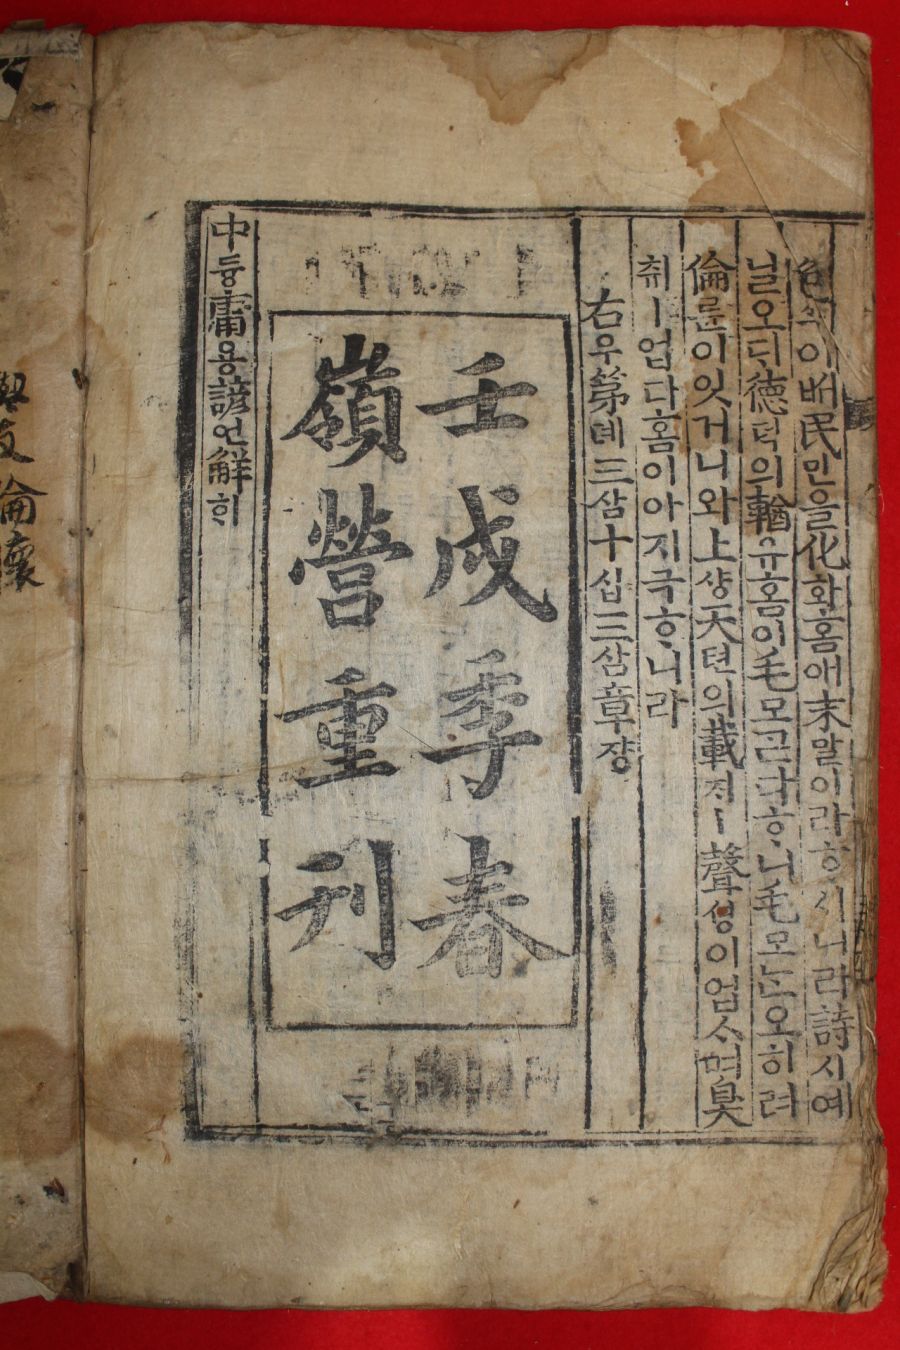 色ᄉᆡᆨ이 ᄇᆡ民민을化화홈애末말이라ᄒᆞ시니라詩시예
닐오ᄃᆡ德덕의輶유홈이毛모ᄀᆞᆮ다ᄒᆞ니毛모ᄂᆞᆫ오히려
倫륜이잇거니와上샹天텬의載ᄌᆡㅣ聲셩이업스며臭
취ㅣ업다홈이아지극ᄒᆞ니라
右우第뎨三삼十십三삼章쟝
壬戌季春
嶺營重刊
中듕庸용諺언解ᄒᆡ
倫懷